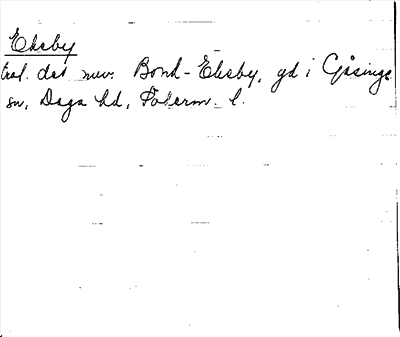 Eksby
trol. det nuv. Bond-Eksby, gd i Gåsinge
sn, Daga hd, Söderm. l.